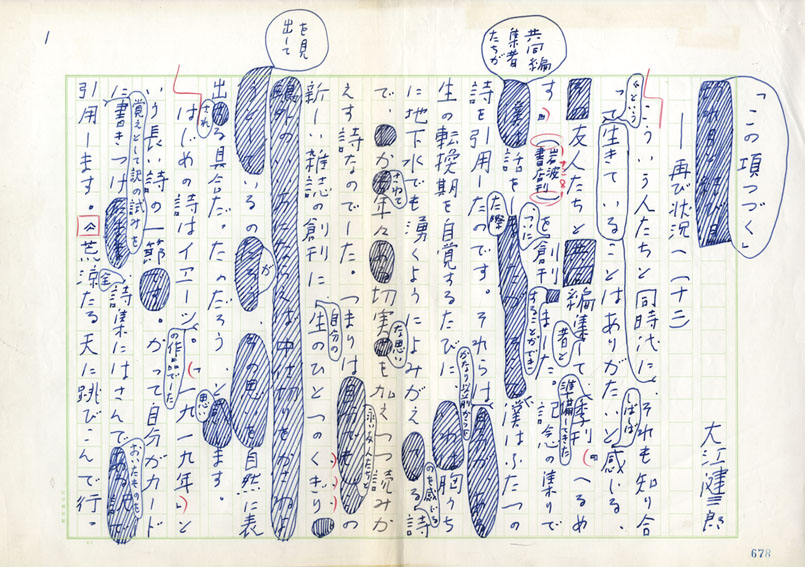 「この項つづく」
――再び状況へ(十二)
大江健三郎
こういう人たちと同時代に、それも知り合
って生きていることはありがたいと、しばしば感じる、
友人たちと編集者として準備してきた季刊「へるめ
す」(岩波書店刊)をついに創刊することができました。記念の集りで
共同編集者たちが
話をした際、僕はふたつの
詩を引用したのです。それらは
生の転換期を自覚するたびに、かなり以前から胸うち
に地下水でも湧くようによみがえるのを感じる詩
で、年々切実な思いを加えつつ読みか
えす詩なのでした。つまりは の
新しい雑誌の創刊に、自分の生のひとつのくぎり
を見出して
自然に表
出される具合だったのだろうと思います。
はじめの詩はイエーツの作品でした。「一九一九年」と
いう長い詩の一節。かつて自分がカード
に覚えとして訳の試みを書きつけ、全詩集にはさんでおいたものを
引用します。《荒涼たる天に跳びこんで行。
1
678